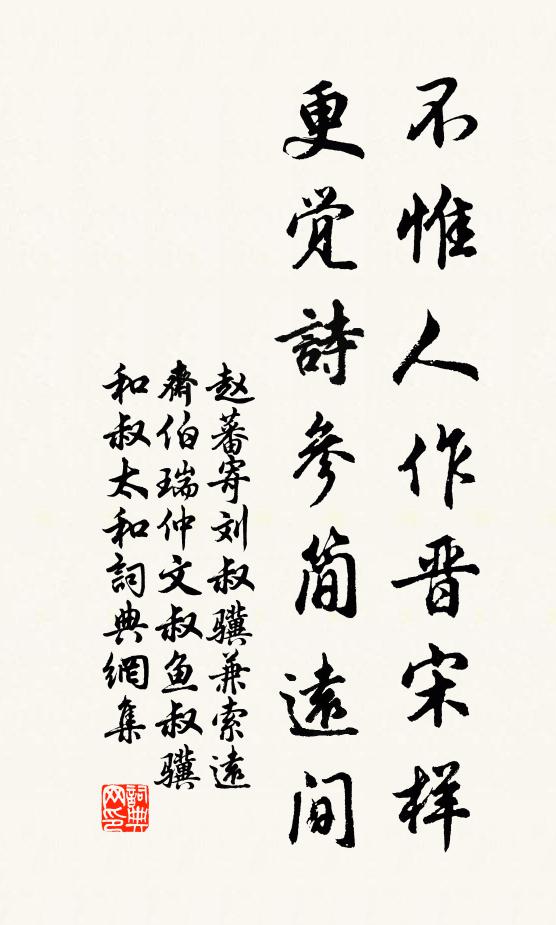 不惟人作晋宋样
更觉詩参简遠间
赵蕃寄刘叔骥兼索遠
斋伯瑞仲文叔鱼叔骥
和叔太和詞典網集
詞典网印